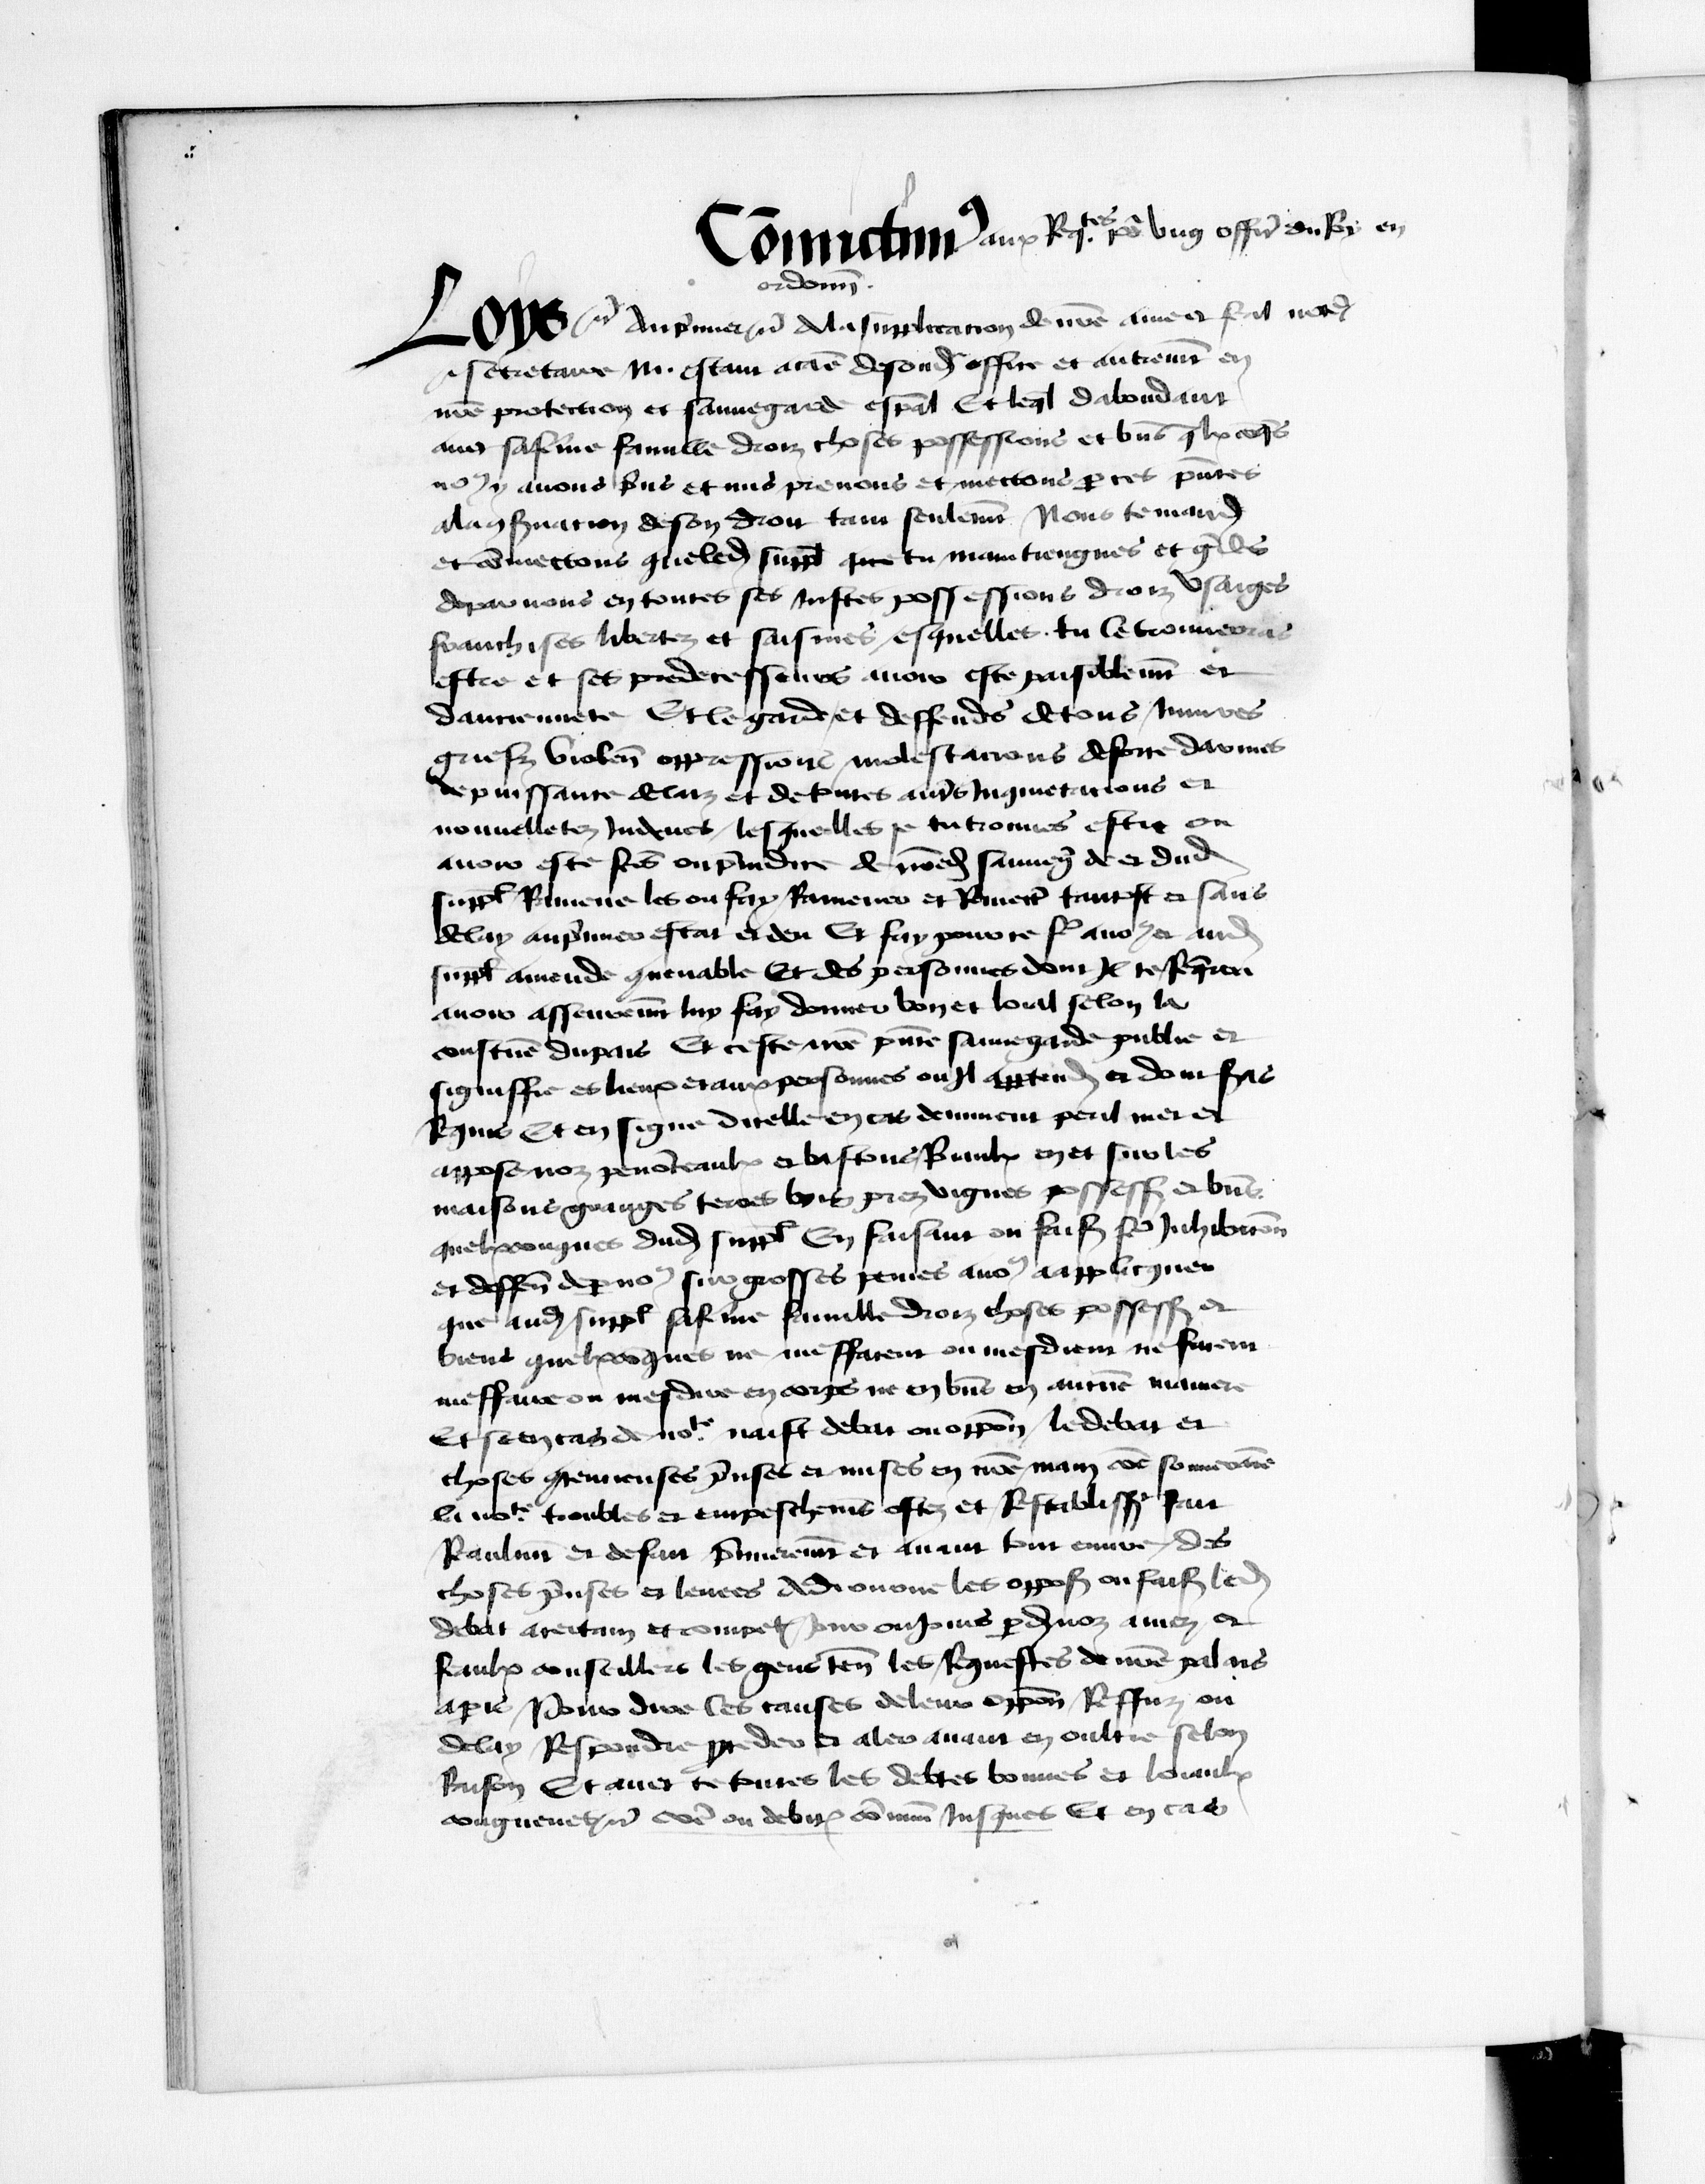 Cōmictim⁹ aux Rq.tes po᷑ ung offic̃ du Roy en
ordonn̄.
Loys etc̃ Au p̃mier etc̃ A la supplicacion de nr̃e ame et feal not̃
et secretaire M. estant a cāe de sond offfice et autremt en
nr̃e protection et sauuegarde esp̃al Et leql dabondant
auec sa fēme famille droiz choses possessions et bn̄s qlxcoq̃s
no⁹ y auons pris et mis prenons et mectons p ces pn̄tes
a la 9ſeruacion de son droit tant seulemt Nous te mand
et cōmectons que led suppl que tu maintiengnes et gardes
de par nous en toutes ses iustes possessions droiz vsaiges
franchises libertez et saisines esquelles tu le trouueras
estre et ses predecesseurs auoir este paisiblemt et
danciennete Et le garde et deffends de tous iniures
griefz violen̄ oppressions molestacions de force darmes
de puissance de laiz et de toutes aut̃s inquietacions et
nouuelletez indeues lesquelles se tu trouues estre ou
auoir este fc̃s ou preiudice de nr̃ed sauueg̃de et dud
suppl Ramene les ou fay Ramener et Remect̃ tantost et sans
delay au p̃mier estat et deu Et fay pour ce f̃e a no⁹ et aud
suppl amende 9uenable Et des personnes dont il te Reqerra
auoir asseuremt luy fay donner bon et loial selon la
coustūe du pais Et ceste nr̃e pn̄te sauuegarde publie et
signiffie es lieux et aux personnes ou il appartend et dont seras
Requis Et en signe dicelle en cas deminent peril mect et
appose noz penonceaulx et bastons Roiaulx en et sur les
maisons granges terres bois prez vignes possess et bn̄s
quelxconques dud suppl En faisant ou faiſ f̃e inhibicōn
et deffen̄ de p no⁹ sur grosses peines a no⁹ a applicquer
que aud suppl sa fēme famille droiz choses possess et
biens quelxconques ne meffacent ou mesdient ne facent
meffaire ou mesdire en corps ne en bn̄s en aucūe maniere
Et se en cas de no.te naist debat ou oppōn le debat et
choses 9tencieuses p̃nses et mises en nr̃e main cōe souueraine
la no.te troubles et empeschems ostez et Restablissemt fait
Raulmt et de fait p̃mieremt et auant tout euure des
choses p̃nses et leuees Adiourne les opposs ou faiſ led
debat a certain et compet jour ou jours p deuant noz amez et
feaulx conseillers les gens ten̄ les Requestes de nr̃e palais
a pis Pour dire les causes de leur oppōn Reffuz ou
delay Respondre proceder et aler auant en oultre selon
Raison Et auec ce toutes les debtes bonnes et loiaulx
congneues etc̃ cōe ou debitis cōmun Jusques Et en cas